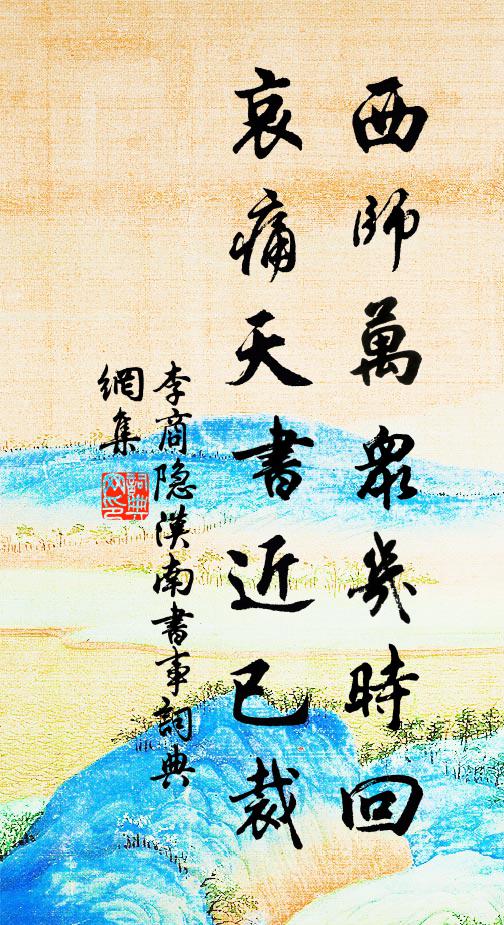 西師萬眾幾時回
哀痛天書近已裁
李商隐漢南書事詞典
網集